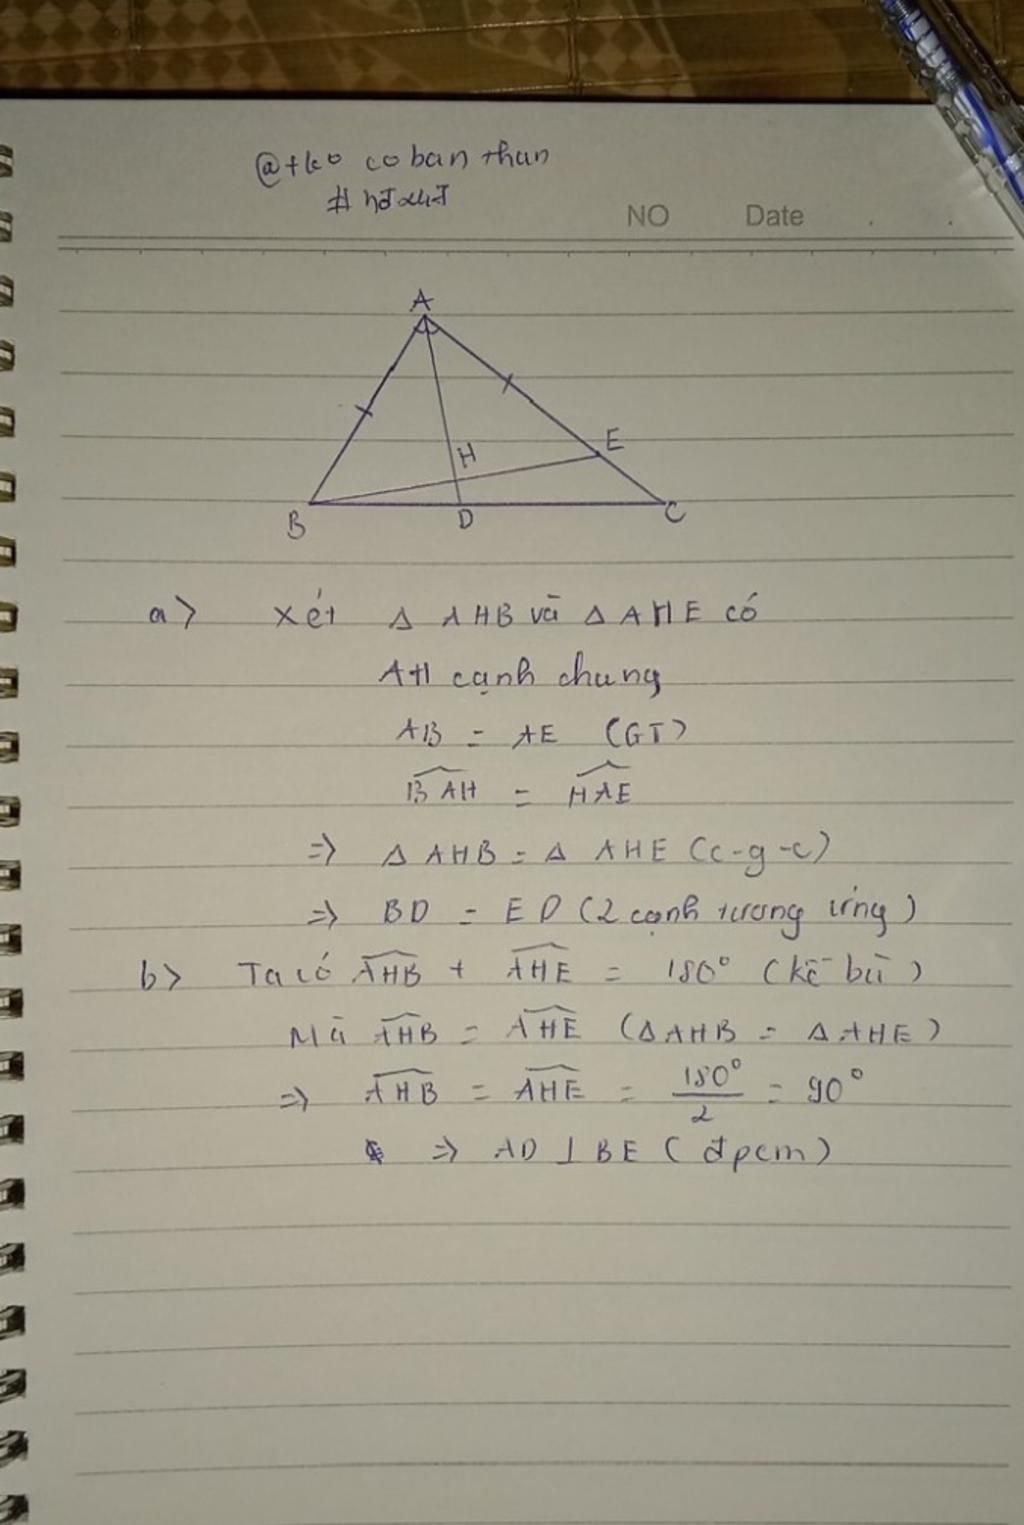 @tko co ban than
NO Date
A
H
E
B
D
C
a> Xét Δ AHB và Δ AHE có
AH cạnh chung
AB = AE (GT)
BAH = HAE
=> Δ AHB = Δ AHE (c-g-c)
=> BD = ED (2 cạnh tương ứng)
b> Ta có AHB + AHE = 180° (kề bù)
Mà AHB = AHE (Δ AHB = Δ AHE)
=> AHB = AHE = 180°/2 = 90°
=> AD ⊥ BE (đpcm)